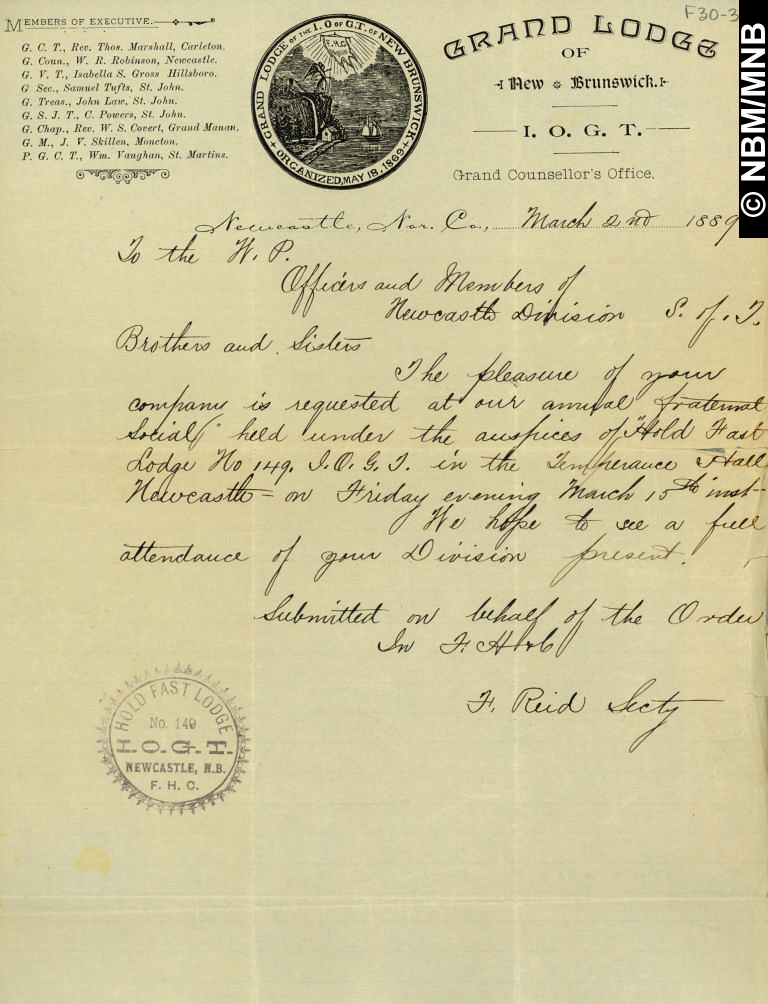 F30-3
© NBM/MNB
MEMBERS OF EXECUTIVE.
G. C. T., Rev. Thos. Marshall, Carleton.
G. Coun., W. R. Robinson, Newcastle.
G. V. T., Isabella S. Gross Hillsboro.
G Sec., Samuel Tufts, St. John.
G. Treas., John Law, St. John.
G. S. J. T., C. Powers, St. John.
G. Chap., Rev. W. S. Covert, Grand Manan.
G. M., J. V. Skillen, Moncton.
P. G. C. T., Wm. Vaughan, St. Martins.
GRAND LODGE OF THE I. O OF G.T. OF NEW BRUNSWICK
F.H.C.
ORGANIZED, MAY 18, 1869
GRAND LODGE
OF
New Brunswick.
I. O. G. T.
Grand Counsellor's Office,
Newcastle, Nor. Co., March 2nd 1889
To the W. P.
Officers and Members of
Newcastle Division S. of. T.
Brothers and Sisters
The pleasure of your
company is requested at our annual fraternal
Social" held under the auspices of "Hold Fast
Lodge No 149. I. O. G. T. in the Temperance Hall
Newcastle = on Friday evening March 15th inst-
We hope to see a full
attendance of your Division present.
Submitted on behalf of the Order
In F. H & C
F. Reid Secty
HOLD FAST LODGE
No. 149
I.O.G.T.
NEWCASTLE, N.B.
F. H. C.